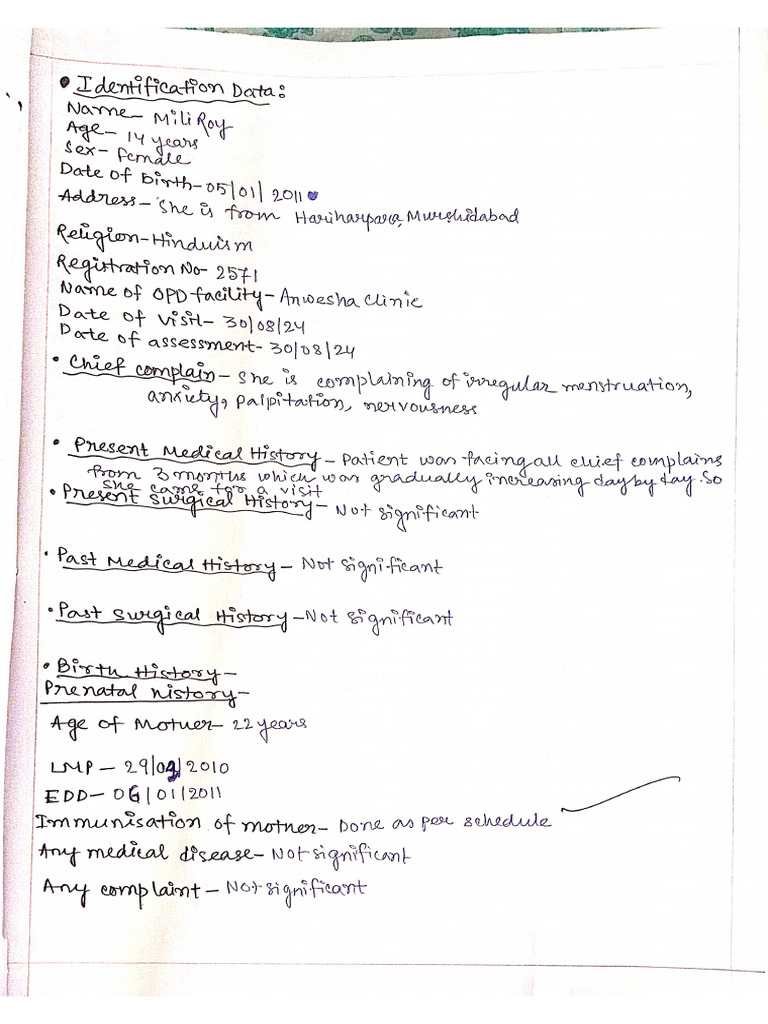 • Identification Data:
Name- Mili Roy
Age- 14 years
Sex- Female
Date of Birth- 05/01/2011
Address- She is from Hariharpara, Murshidabad
Religion- Hinduism
Registration No- 2571
Name of OPD facility- Anwesha Clinic
Date of visit- 30/08/24
Date of assessment- 30/08/24
• Chief complain- She is complaining of irregular menstruation,
anxiety, palpitation, nervousness
• Present Medical History- Patient was facing all chief complains
from 3 months which was gradually increasing day by day. So
she came for a visit
• Present Surgical History- Not significant
• Past Medical History- Not significant
• Past Surgical History- Not significant
• Birth History-
Prenatal history-
Age of Mother- 22 years
LMP- 29/03/2010
EDD- 06/01/2011
Immunisation of mother- Done as per schedule
Any medical disease- Not significant
Any complaint- Not significant